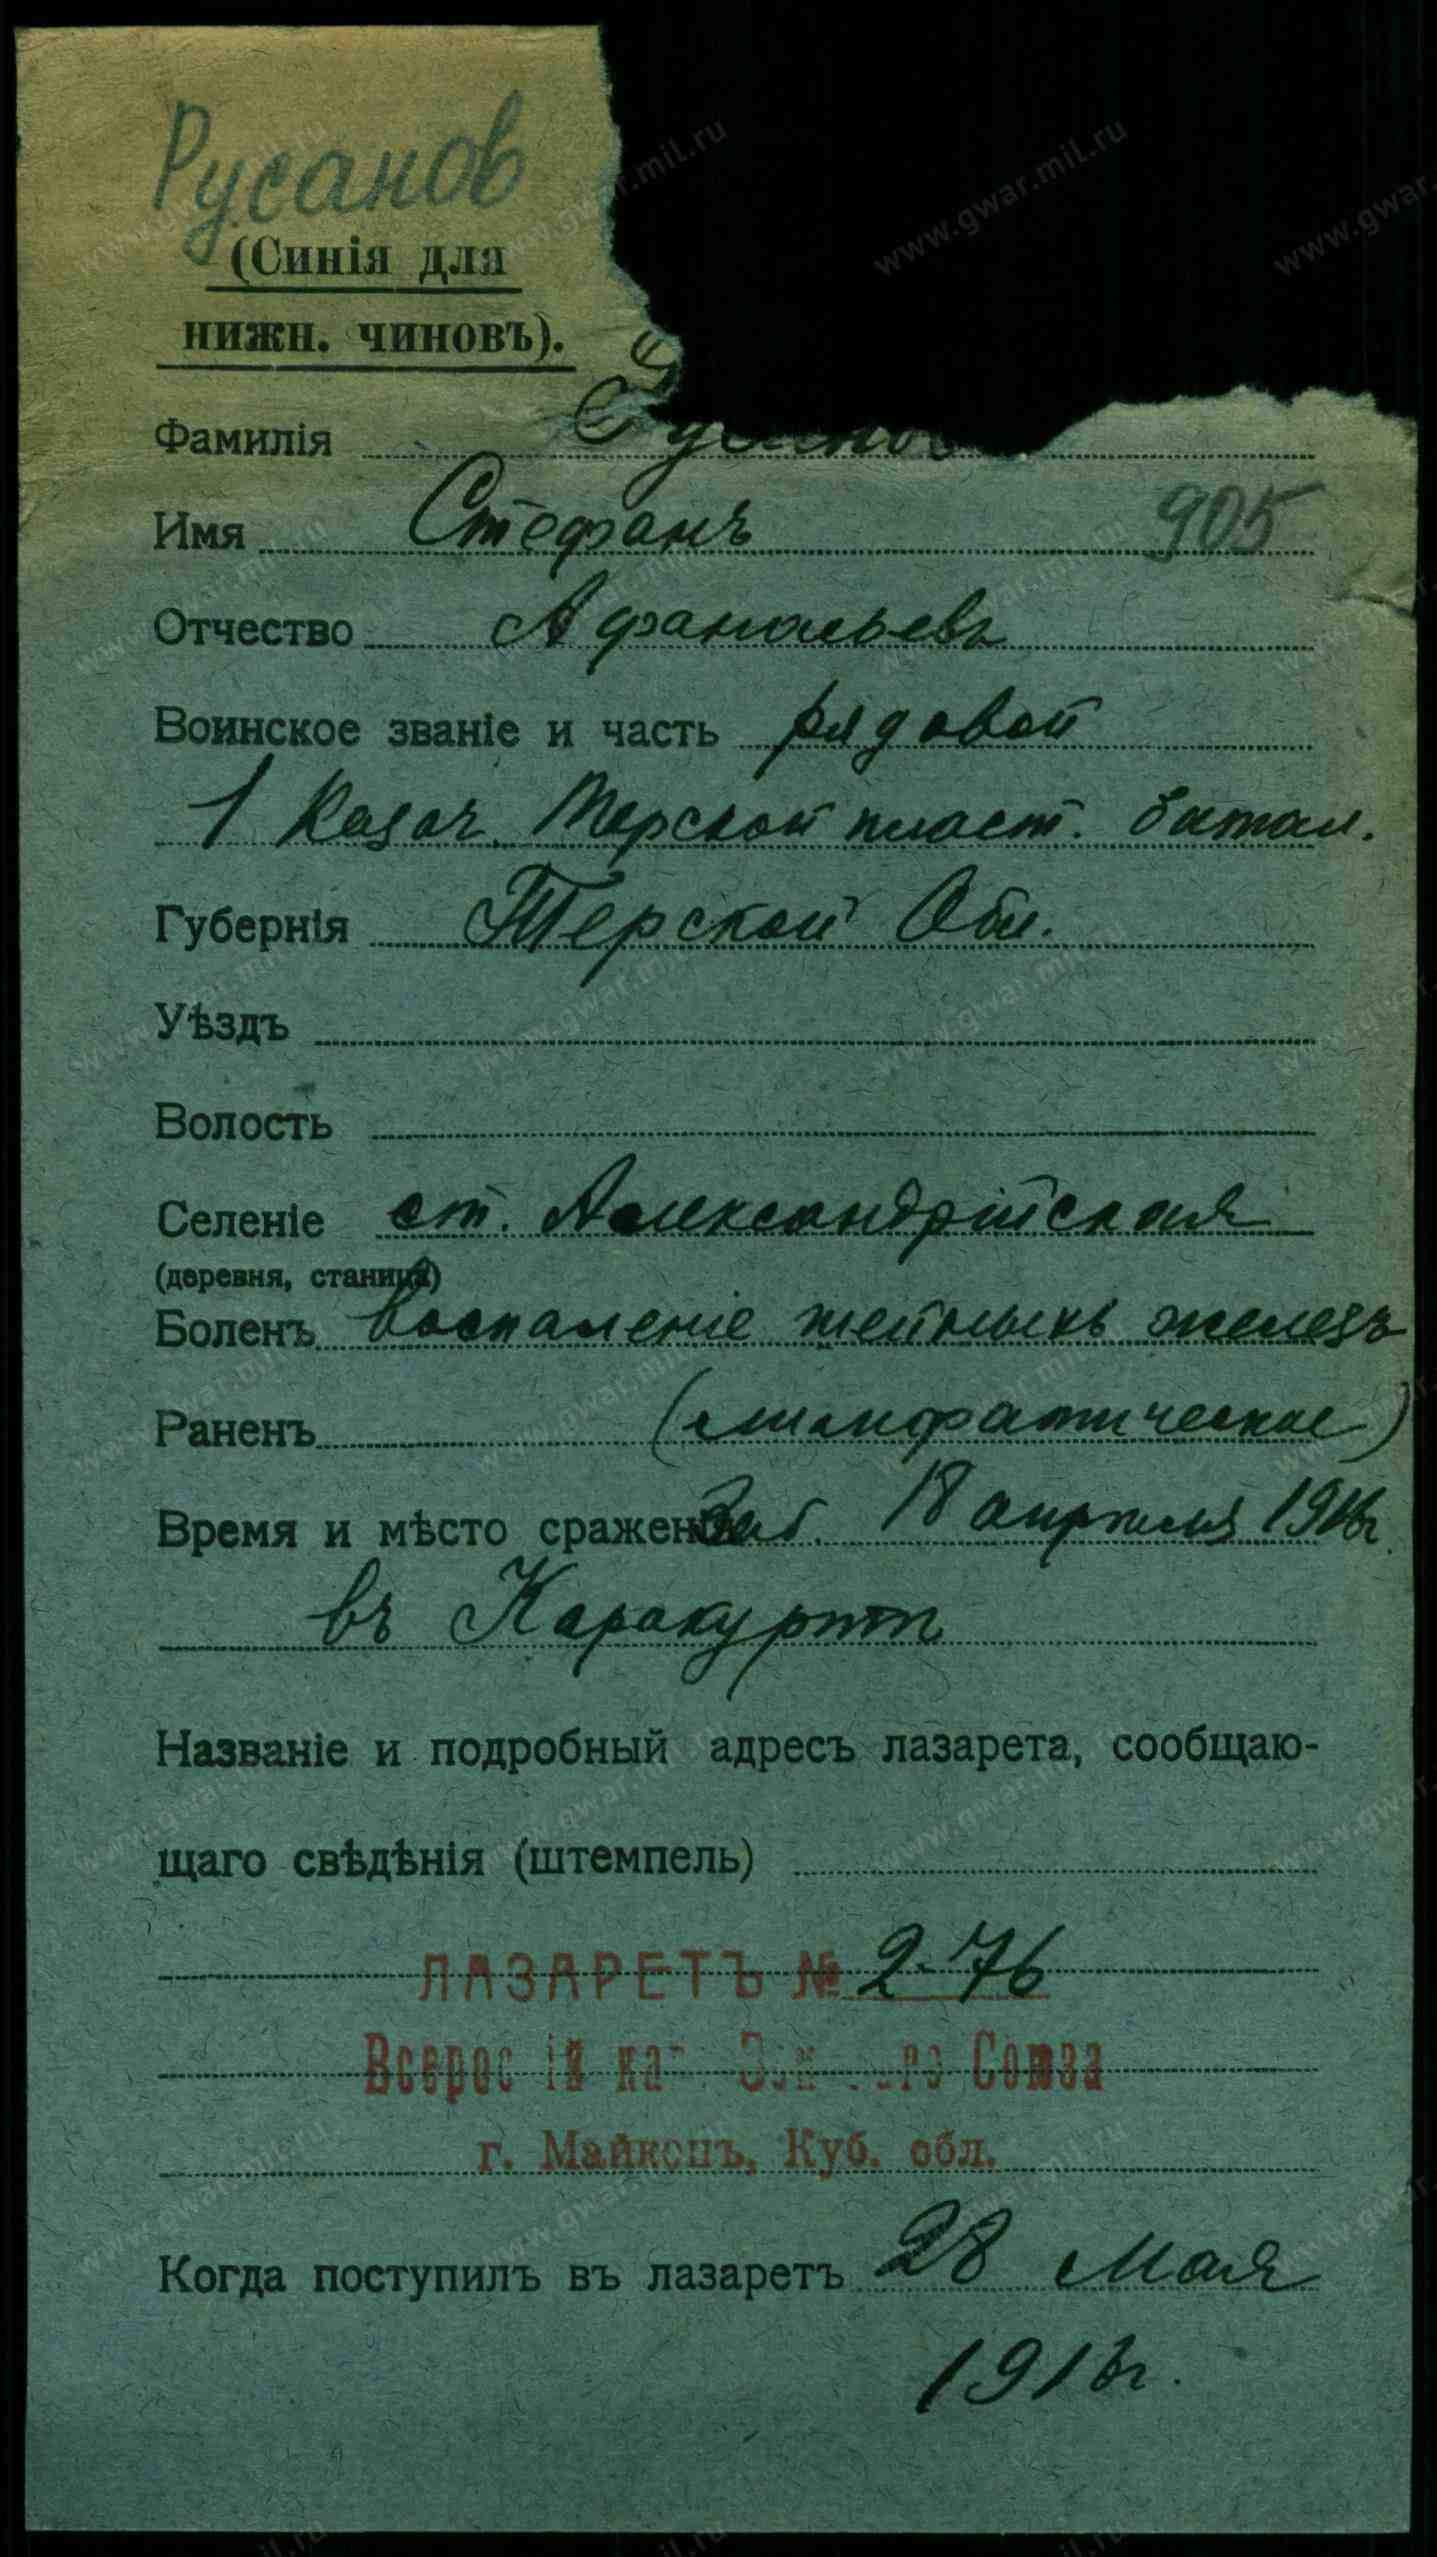 Русанов
(Синія для
нижн. чиновъ).
Фамилія Русанов
Имя Стефанъ 905
Отчество Афанасьевъ
Воинское званіе и часть рядовой
1 Казач. Терской пласт. батал.
Губернія Терской Обл.
Уѣздъ
Волость
Селеніе ст. Александрійская
(деревня, станица)
Боленъ Воспаленіе шейныхъ железъ
Раненъ (лимфатическіе)
Время и мѣсто сраженія Заб. 18 апрѣля 1916г.
въ Каракуртѣ
Названіе и подробный адресъ лазарета, сообщаю-
щаго свѣдѣнія (штемпель)
ЛАЗАРЕТЪ № 2-76
Союза
г. Майкопъ, Куб. обл.
Когда поступилъ въ лазаретъ 28 Мая
1916г.